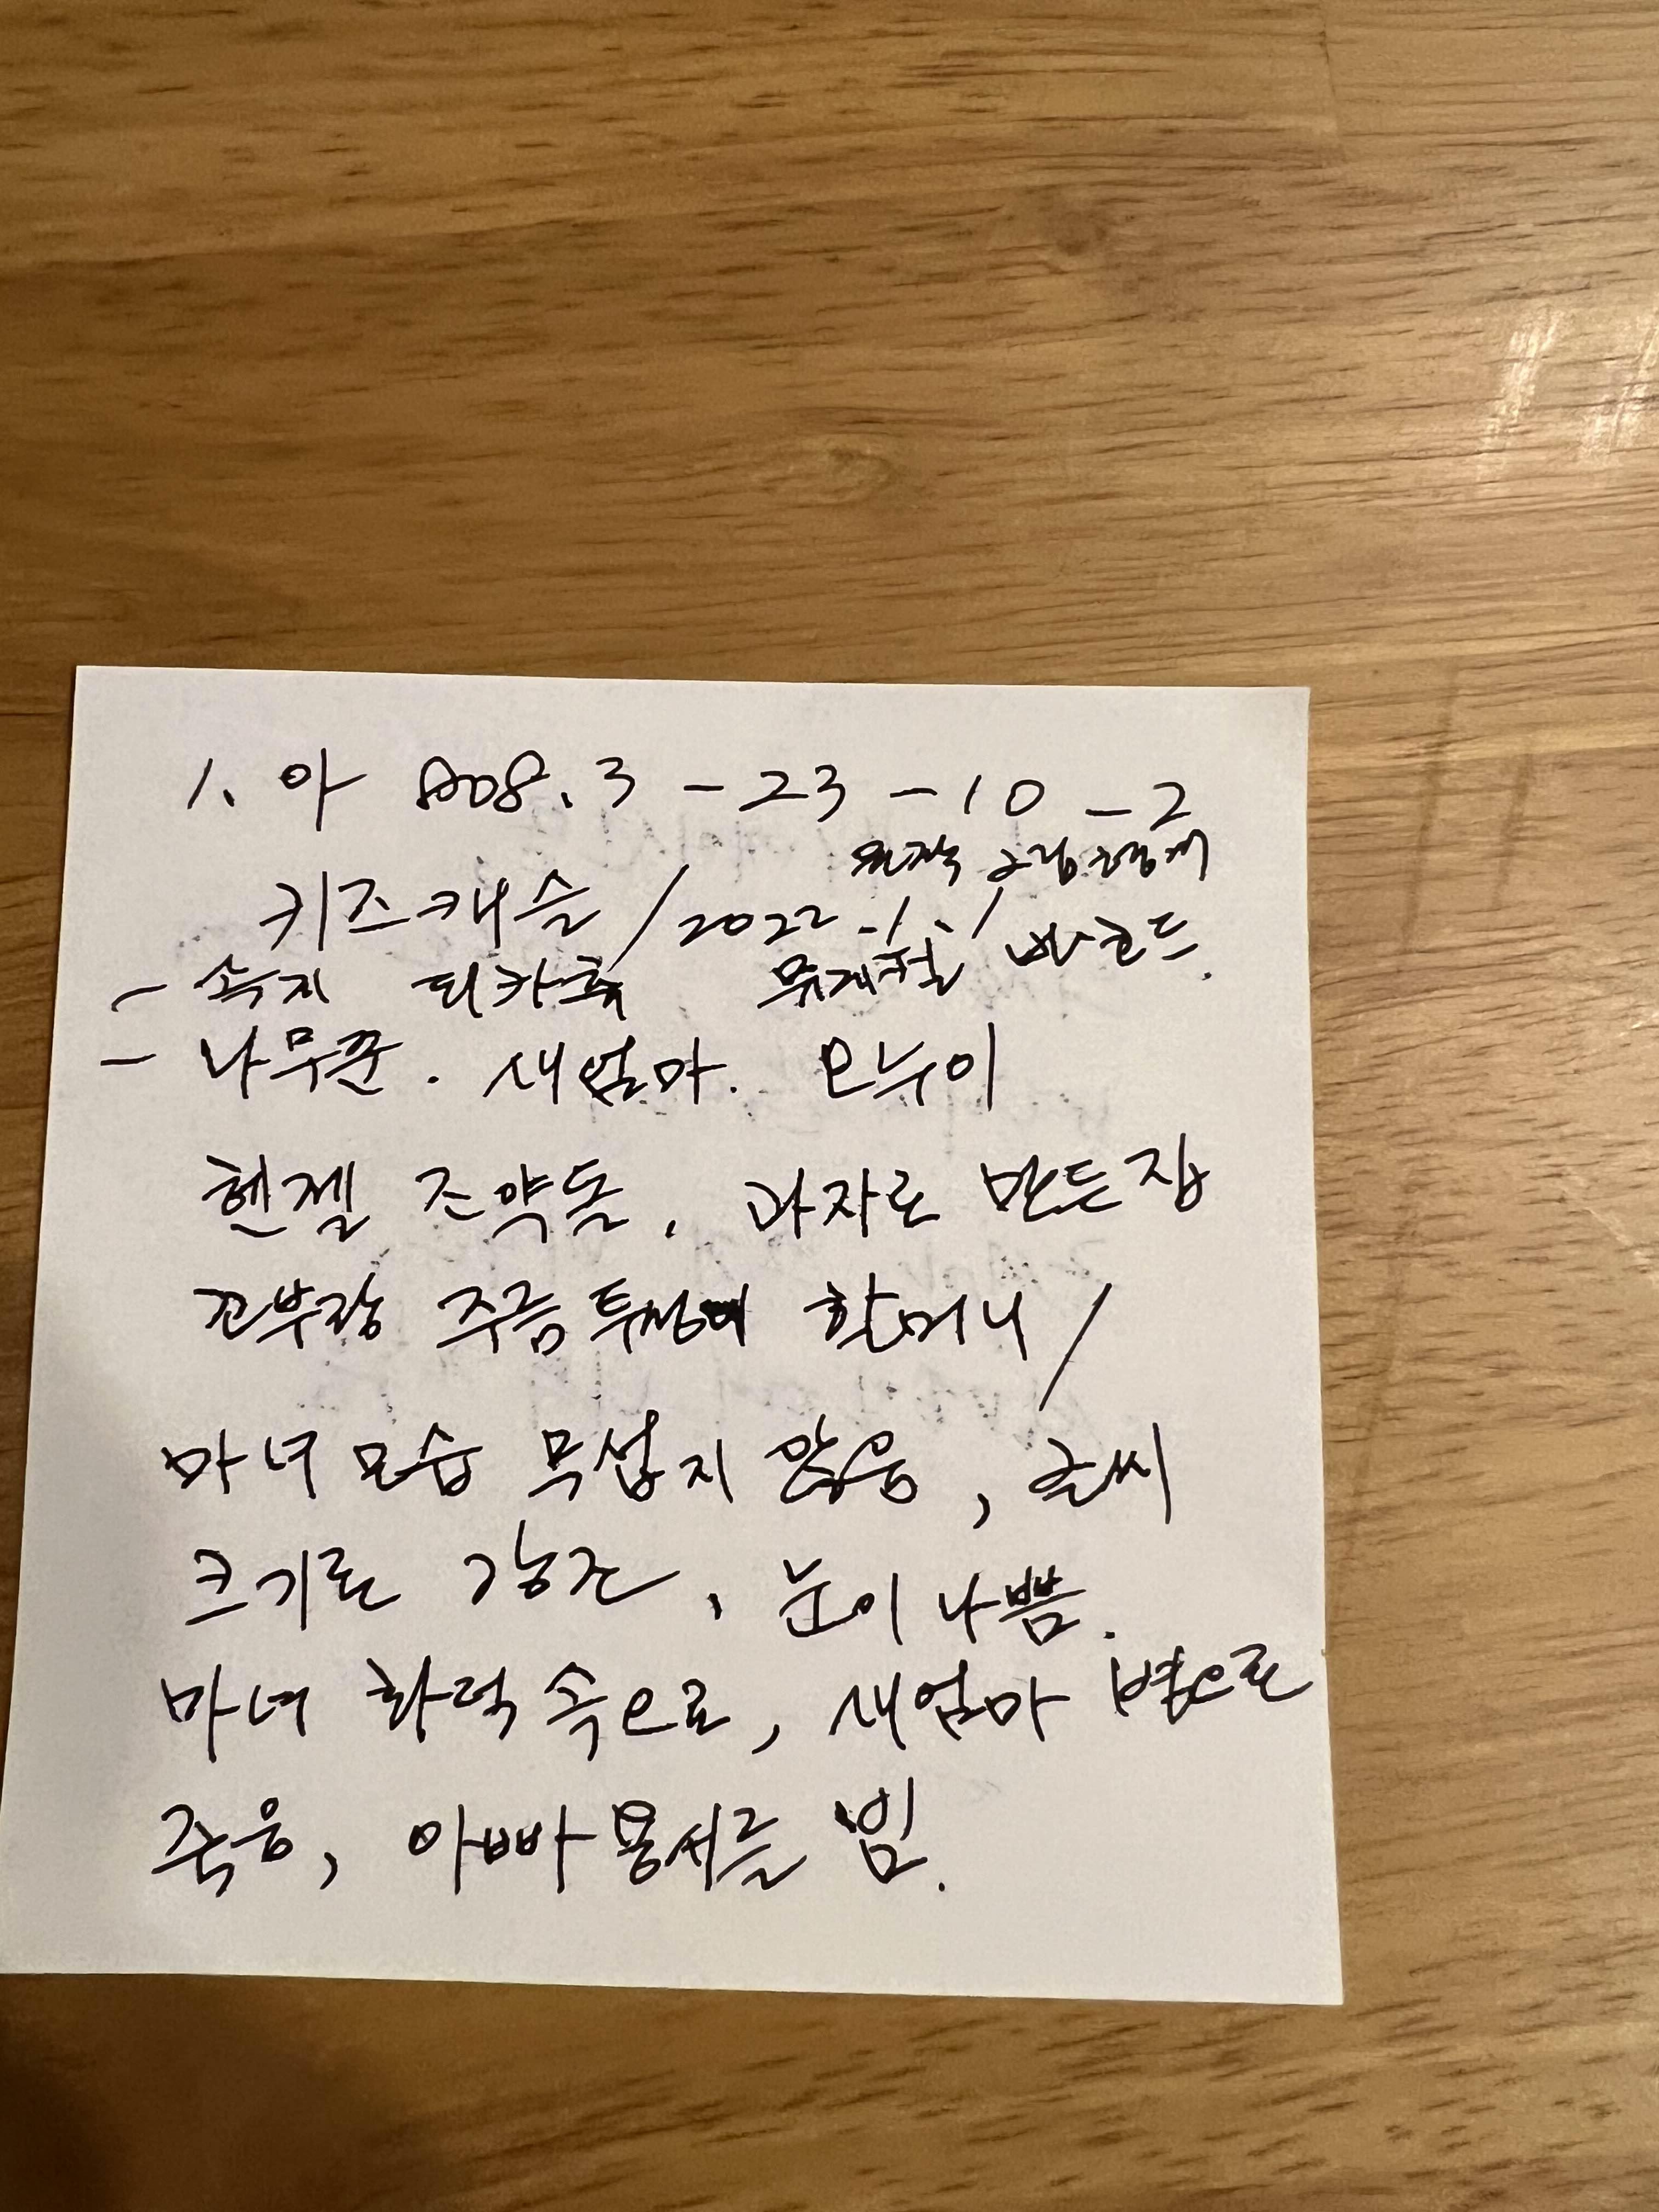 1. 아 808.3 - 23 - 10 - 2
원작 그림형제
키즈캐슬 / 2022. 1. 1
- 속지 바코드.
- 나무꾼. 새엄마. 오누이
헨젤 조약돌, 과자로 만든 집
꼬부랑 주름투성이 할머니 /
마녀 모습 무섭지 않음, 글씨
크기로 강조, 눈이 나쁨.
마녀 화덕 속으로, 새엄마 병으로
죽음, 아빠 용서를 빔.